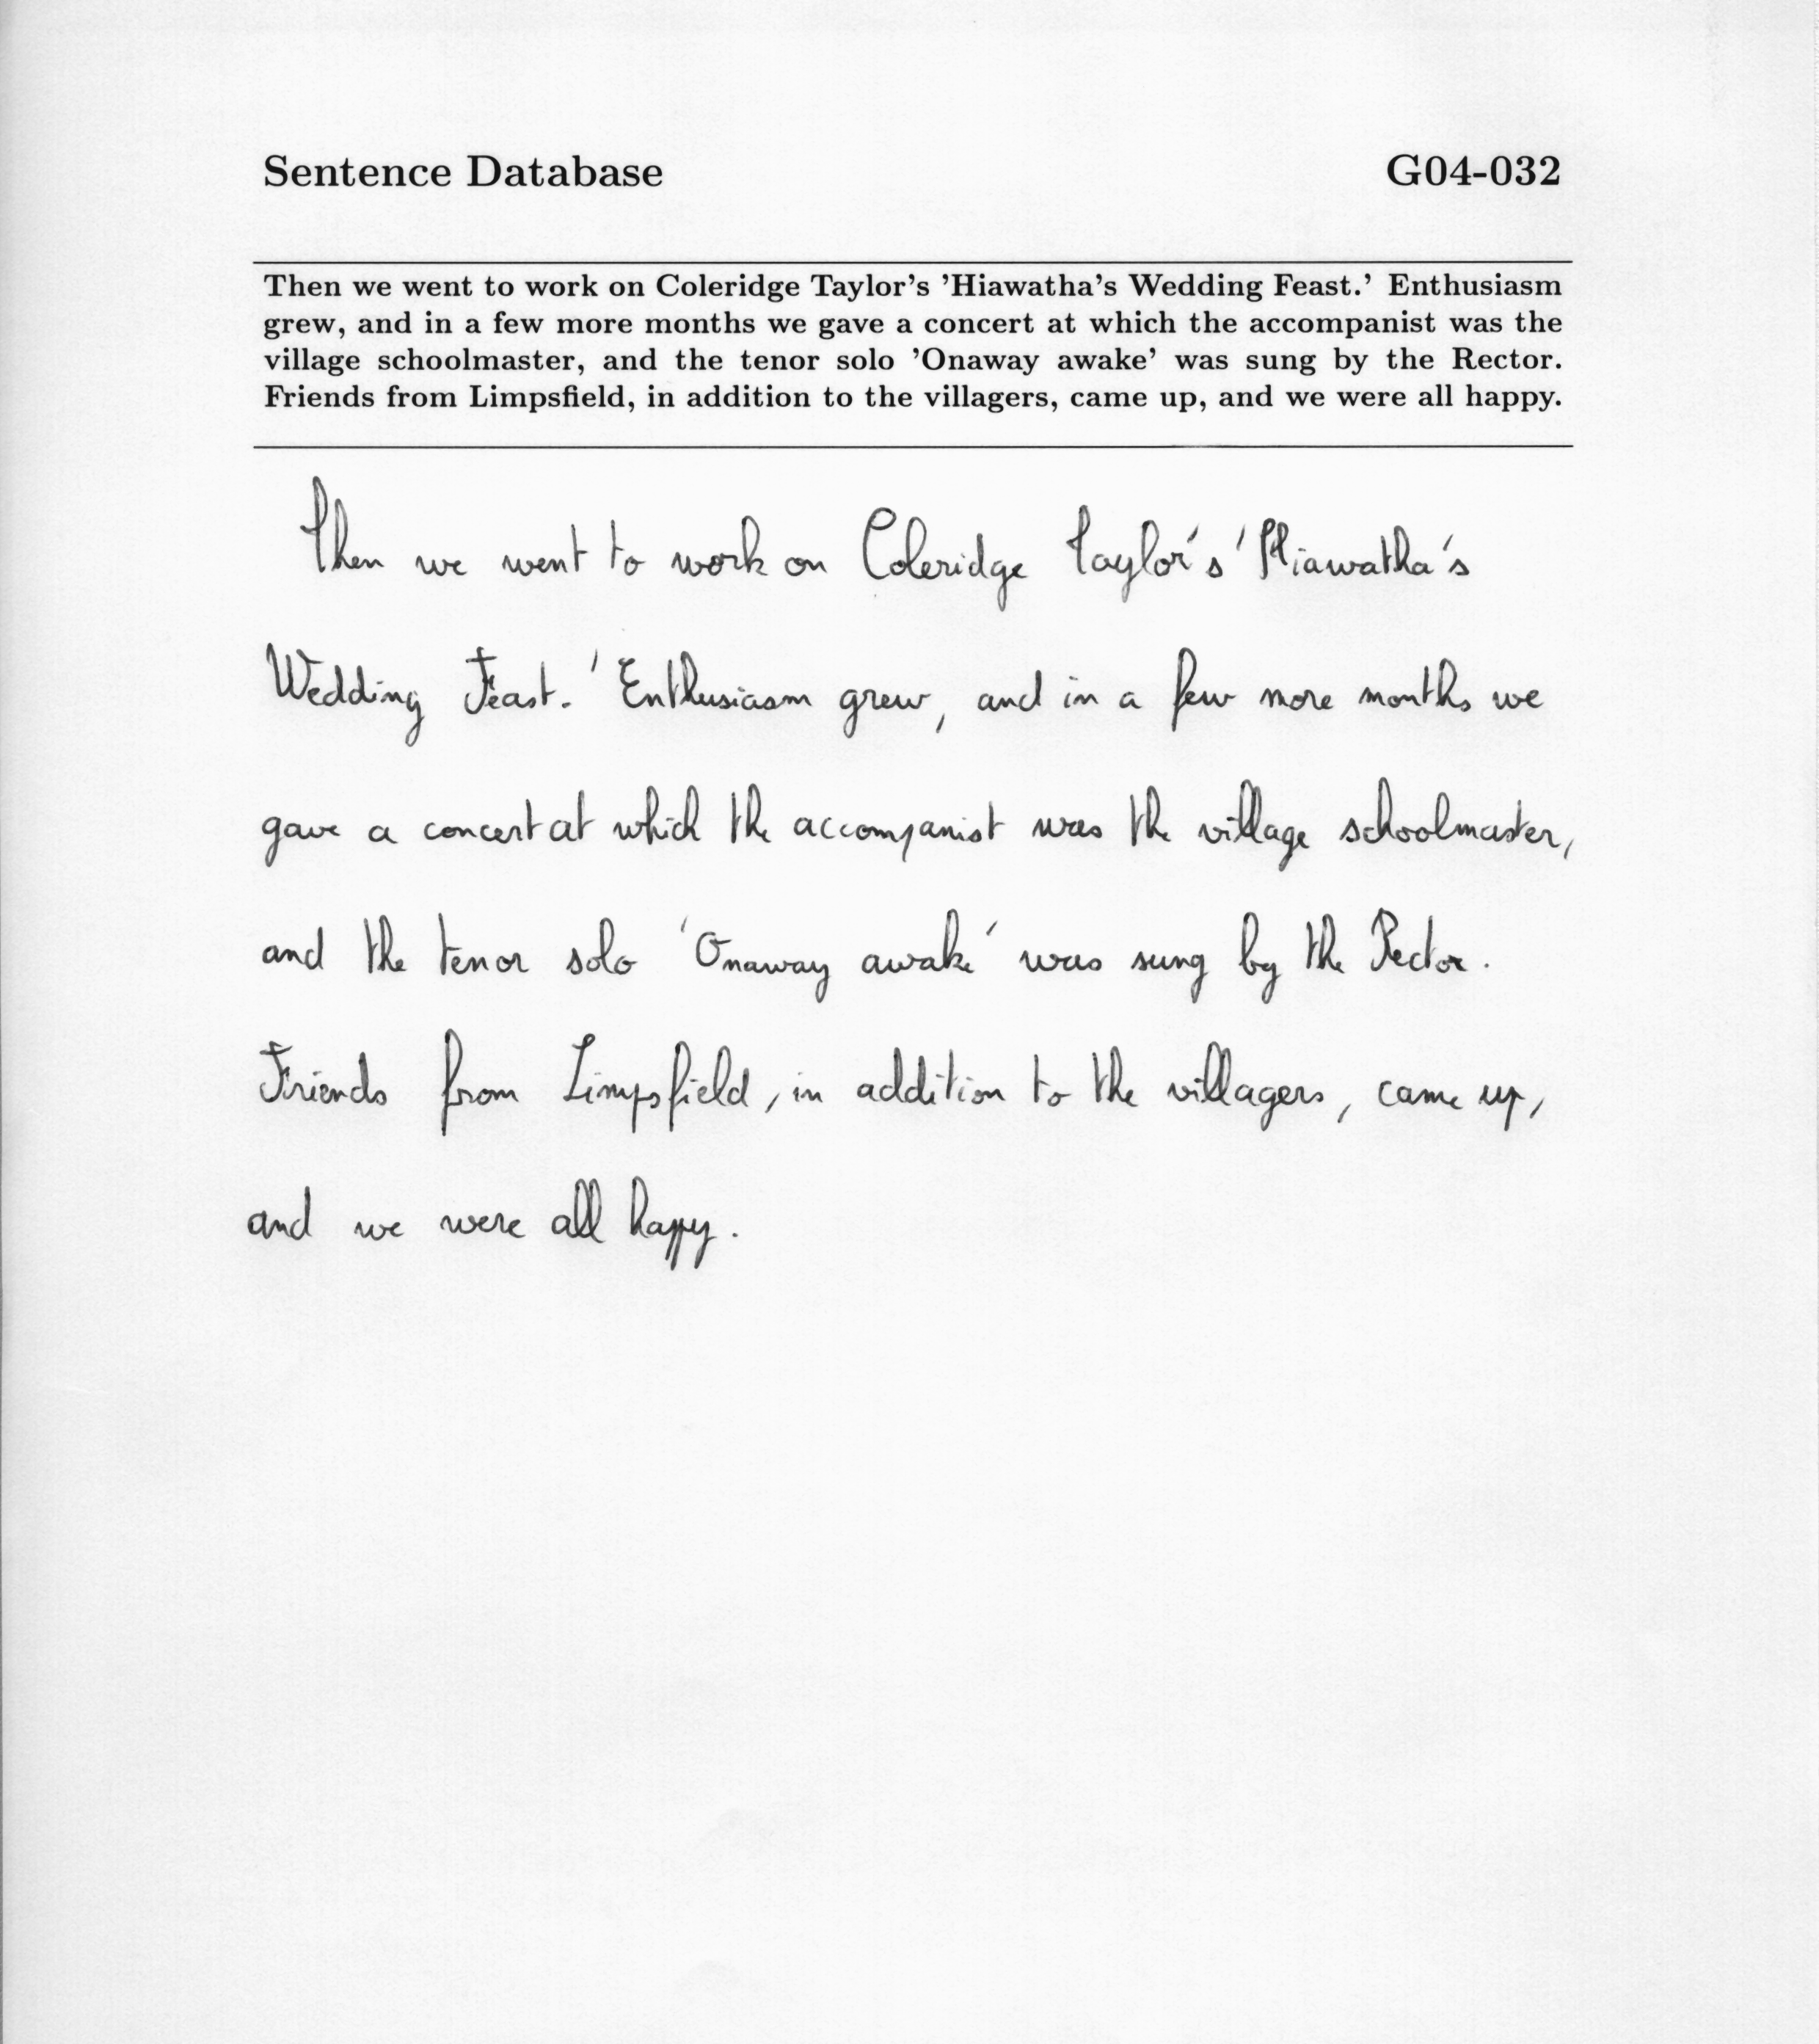 Sentence Database G04-032
Then we went to work on Coleridge Taylor's 'Hiawatha's Wedding Feast.' Enthusiasm
grew, and in a few more months we gave a concert at which the accompanist was the
village schoolmaster, and the tenor solo 'Onaway awake' was sung by the Rector.
Friends from Limpsfield, in addition to the villagers, came up, and we were all happy.
Then we went to work on Coleridge Taylor's 'Hiawatha's
Wedding Feast.' Enthusiasm grew, and in a few more months we
gave a concert at which the accompanist was the village schoolmaster,
and the tenor solo 'Onaway awake' was sung by the Rector.
Friends from Limpsfield, in addition to the villagers, came up,
and we were all happy.